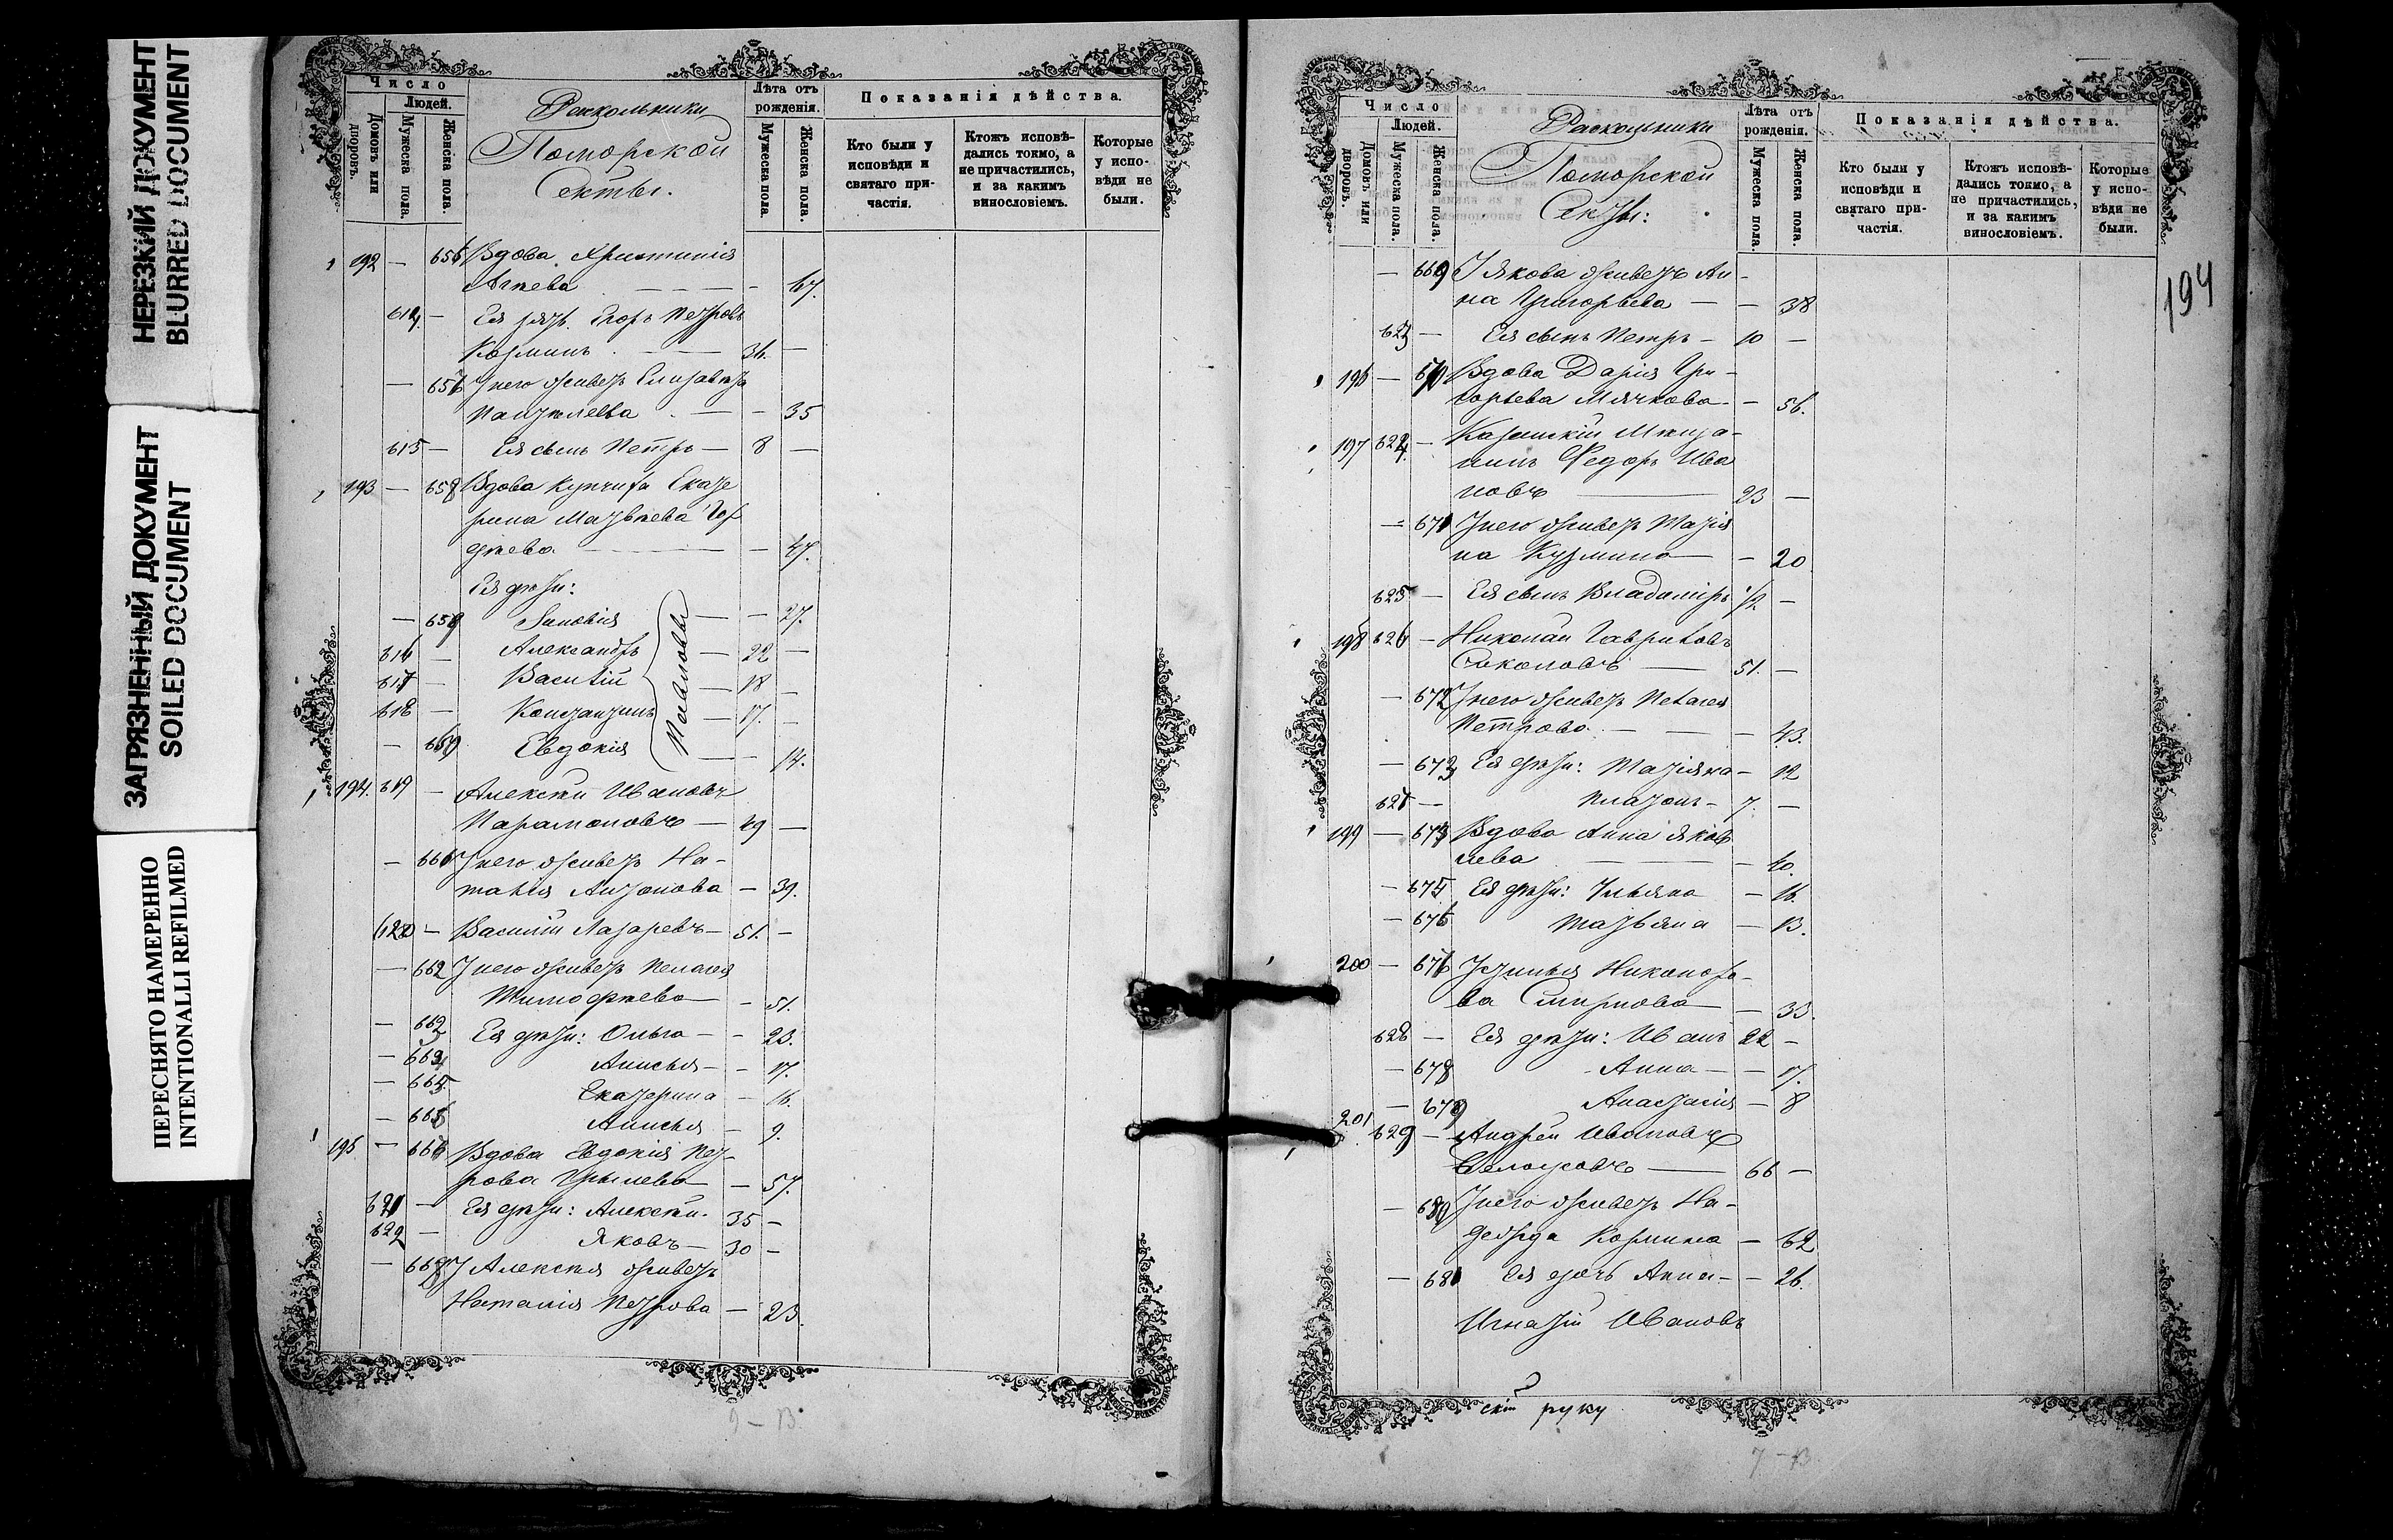 НЕРЕЗКИЙ ДОКУМЕНТ
BLURRED DOCUMENT
ЗАГРЯЗНЕННЫЙ ДОКУМЕНТ
SOILED DOCUMENT
ПЕРЕСНЯТО НАМЕРЕННО
INTENTIONALLI REFILMED
Число
Людей.
Домовъ или дворовъ.
Мужеска пола.
Женска пола.
Раскольники
Поморской
Секты.
Лѣта отъ рожденія.
Мужеска пола.
Женска пола.
Показанія дѣйства.
Кто были у исповѣди и святаго причастія.
Ктожъ исповѣдались токмо, а не причастились, и за какимъ винословіемъ.
Которые у исповѣди не были.
192 — Вдова Христинія
— 67.
614. — Ея зять Егоръ Петровъ
— 36. —
— 656 У него жена Елизавета
Пантелеева — — 35
615 — Ея сынъ Петръ — 8 —
193 — 658 Вдова купчиха Екате
рина Матвѣева
— 47.
Ея дѣти:
— 659 Зиновія — — 27.
616 — Александръ — 22 —
617 — Василій — 18 —
618 — Константинъ — 17. —
— Евдокія — — 14.
194. 619 — Алексѣй Ивановъ
Парамоновъ — 49 —
— 661 У него жена На-
талія Антонова — 39.
620 — Василій Лазаревъ — 51. —
— 662 У него жена Пелагея
Тимофѣева — 51.
— Ея дѣти: Ольга — — 23.
— Анисья — — 17.
— 665. Екатерина — 16.
— Анисья — 9.
195 — 666 Вдова Евдокія Пет-
рова — 57.
621 — Ея дѣти: Алексѣй. 35 —
622 — Яковъ — 30 —
— У Алексѣя жена
Наталія Петрова — 23.
9 — 13.
Число
Людей.
Домовъ или дворовъ.
Мужеска пола.
Женска пола.
Раскольники
Поморской
Секты:
Лѣта отъ рожденія.
Мужеска пола.
Женска пола.
Показанія дѣйства.
Кто были у исповѣди и святаго причастія.
Ктожъ исповѣдались токмо, а не причастились, и за какимъ винословіемъ.
Которые у исповѣди не были.
194
— 669 У Якова жена Ан-
на Григорьева — — 38
623 — Ея сынъ Петръ — 10 —
196 — 670 Вдова Дарія Гри-
горьева Мячкова — — 56.
197 624 — Казанскій Мѣща-
нинъ Федоръ Ива
новъ — 23 —
— 671 У него жена Татія
на Кузмина — — 20
625 — Ея сынъ Владиміръ 1/2 —
198 626 — Николай Гавриловъ
Соколовъ — 51. —
— 672 У него жена Пелагея
Петрова — — 43.
— 673 Ея дѣти: Татіяна — 12
627 — Платонъ — 7. —
199 — 674 Вдова Анна Яков
лева — — 40.
— 675 Ея дѣти: Ульяна — 16.
— 676 Татьяна — 13.
200 — Устинья Никаноро-
ва Смирнова — 33.
628 — Ея дѣти: Иванъ 22 —
— 678 Анна — — 17.
— 679 Анастасія — 8
201 629 — Андрей Ивановъ
Бѣлоусовъ — 66 —
— 680 У него жена На-
дежда Козмина — 62
— 681 Ея дочь Анна — — 26.
Игнатій Ивановъ
скій руку
7 — 13.